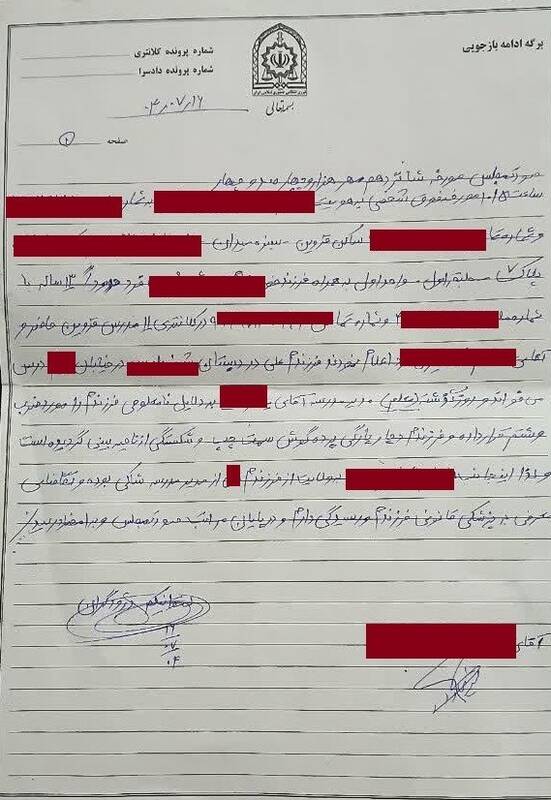 برگه ادامه بازجویی
شماره پرونده کلانتری
شماره پرونده دادسرا
بسمه‌تعالی
۰۴/۰۷/۱۶
صفحه ۱
صورتمجلس مورخه شانزدهم مهر هزار و چهارصد و چهار
ساعت ۱۰/۱۵ مورخه فوق شخصی به هویت به شماره
و شماره ملی ساکن قزوین - سبزه میدان
پلاک ۷ طبقه اول - واحد اول به همراه فرزند ۱۳ ساله
شماره ملی و شماره تماس در کلانتری ۱۱ مدرس قزوین حاضر و
آقای اعلام نمودند فرزندم علی در دبستان در خیابان درس
می خواند و روز گذشته مدیر مدرسه آقای به دلایل نامعلومی فرزندم را مورد ضرب
و شتم قرار داده و فرزندم دچار پارگی پرده گوش سمت چپ و شکستگی از ناحیه بینی گردیده است
و لذا اینجانب به ولایت از فرزندم از مدیر مدرسه شاکی بوده و تقاضای
معرفی به پزشکی قانونی فرزندم و رسیدگی دارم و در پایان مراتب صورتمجلس و به امضاء رسید
آقای
۱۶
۰۷
۰۴